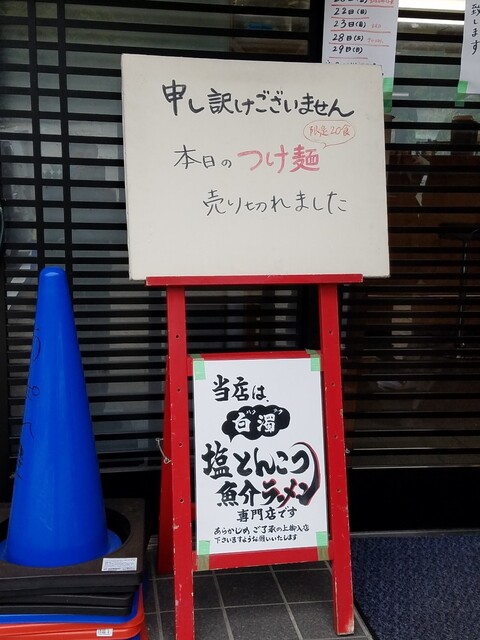 22日(月)
23日(火)
28日(日)
29日(月)
致します
申し訳けございません
限定20食
本日のつけ麺
売り切れました
当店は、
ハク ダク
白濁
塩とんこつ
魚介ラーメン
専門店です
あらかじめ ご了承の上御入店
下さいますようお願いいたします